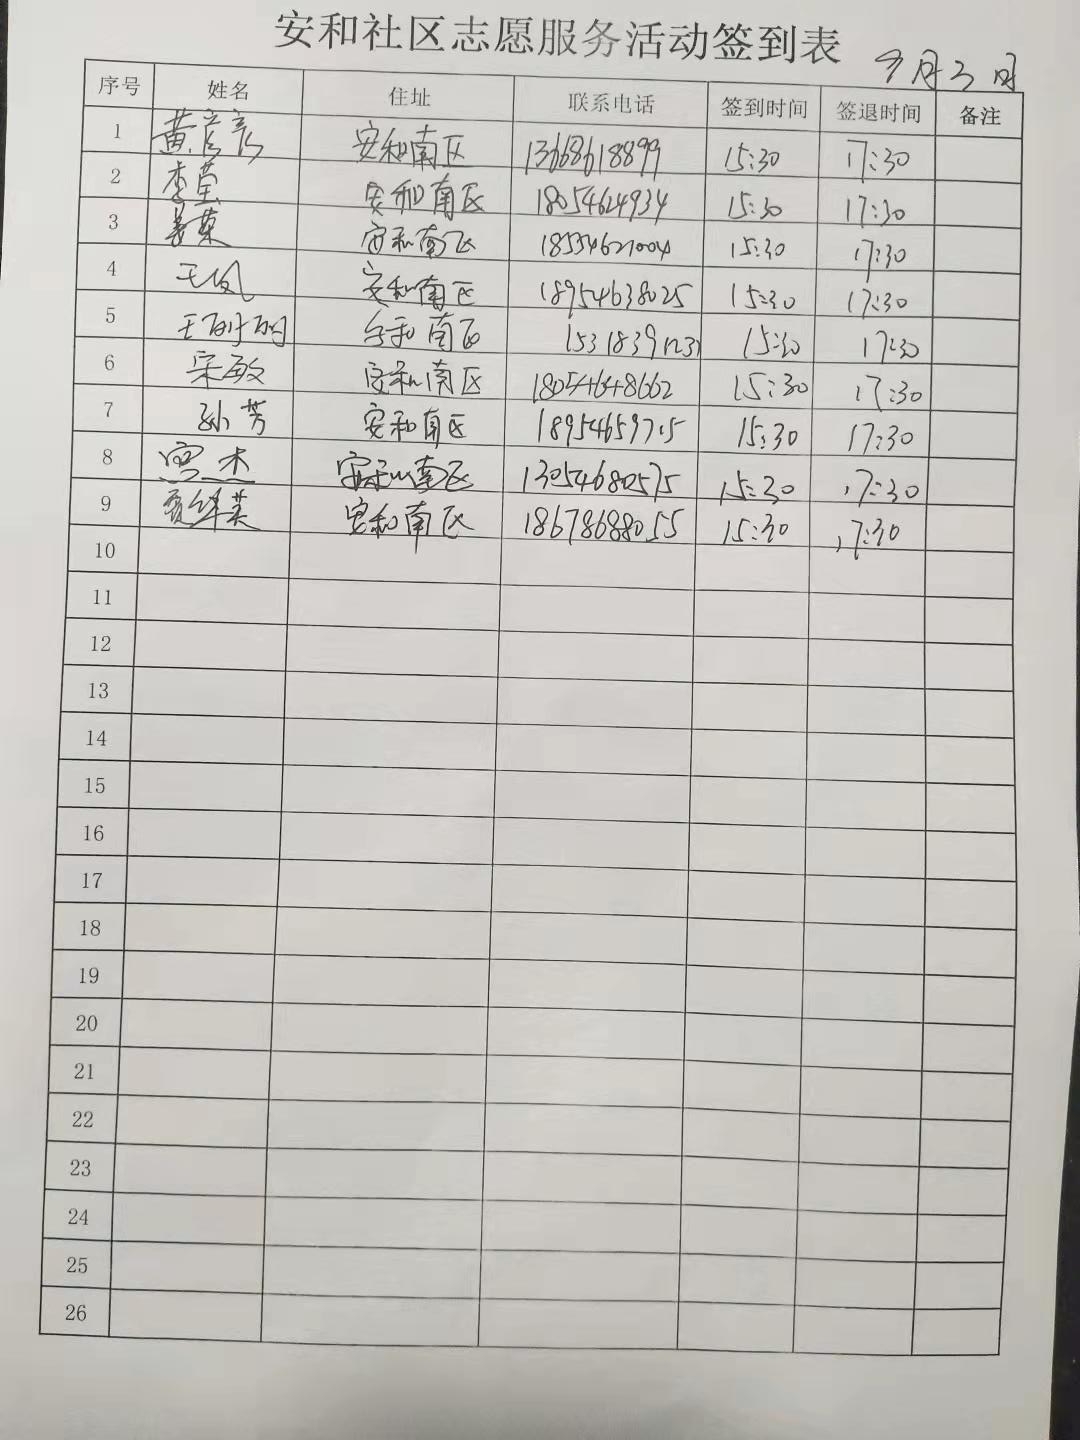 安和社区志愿服务活动签到表
9月3日
序号 姓名 住址 联系电话 签到时间 签退时间 备注
1 黄彦彦 安和南区 13668618899 15:30 17:30
2 李莹 安和南区 18054624934 15:30 17:30
3 姜荣 安和南区 18554621004 15:30 17:30
4 王凤 安和南区 18954638025 15:30 17:30
5 王 安和南区 15:30 17:30
6 宋敏 安和南区 18054648662 15:30 17:30
7 孙芳 安和南区 18954659715 15:30 17:30
8 杰 安和南区 13054680575 15:30 17:30
9 安和南区 18678688055 15:30 17:30
10
11
12
13
14
15
16
17
18
19
20
21
22
23
24
25
26